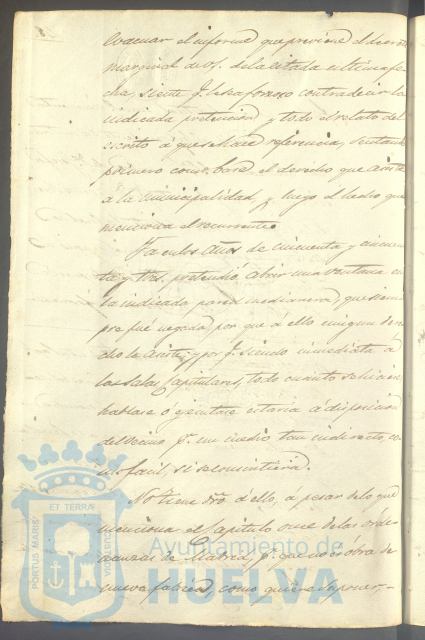 evacuar el informe que previene el decreto
marginal de V.S. de la citada ultima fe-
cha, siente q.e le sea forzoso contradecir la
indicada pretencion y todo el relato del
escrito á que se hace referencia, sentando
primero como base el derecho que asiste
á la municipalidad, y luego el hecho que
menciona el recurrente.
Ya en los años de cincuenta y cincuen-
ta y tres pretendió abrir una ventana en
la indicada pared medianera, que siem-
pre fué negada, por que á ello ningun dere-
cho le asiste, y por q.e siendo inmediata á
las Salas Capitulares, todo cuanto se hiciere
hablase ó ejecutare estaria á disposicion
del vecino p.r un medio tan indirecto, co-
mo facil, si se consintiera.
No tiene dro á ello, á pesar de lo que
menciona el capitulo once de las orde-
nanzas de Madrid, p.r que no es obra de
nueva fabrica, como quiere suponer,-
ET TERRÆ
PORTUS MARIS
CUSTODIA
Ayuntamiento de
HUELVA